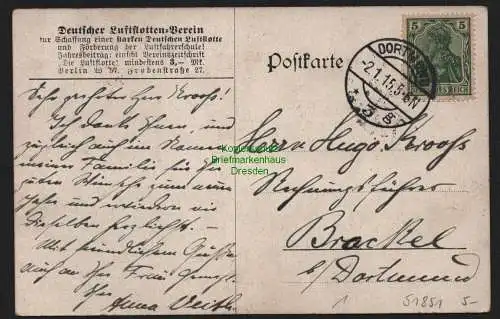 Deutscher Luftflotten-Verein
zur Schaffung einer starken Deutschen Luftflotte
und Förderung der Luftfahrerschule!
Jahresbeitrag: einschl Vereinszeitschrift
"Die Luftflotte" mindestens 3,— Mk.
Berlin W Frobenstraße 27.
Postkarte
5 5
DORTMUND
-2.1.15.5-6N
* 5 g
Sehr geehrter Herr Kroohs!
Ich danke Ihnen, und
auch im Namen
meiner Familie für Ihre
guten Wünsche zum neuen
Jahr und erwidere
dieselben herzlichst.
Mit freundlichem Gruße
auch an Ihre Frau
Ihre
Anna
Herrn Hugo Kroohs
Rechnungsführer
Brackel
b/Dortmund
Kopierschutz
Briefmarkenhaus
Dresden
1 51851 5-